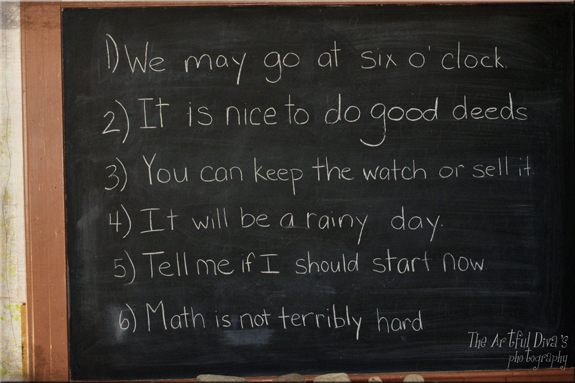 1) We may go at six o'clock.
2) It is nice to do good deeds
3) You can keep the watch or sell it.
4) It will be a rainy day.
5) Tell me if I should start now.
6) Math is not terribly hard
The Artful Diva's
photography